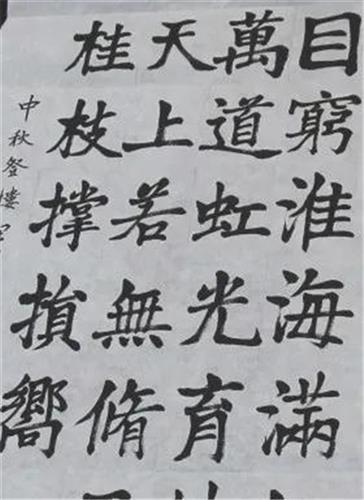 目窮淮海滿
萬道虹光育
天上若無脩
桂枝撑損嚮
中秋登樓